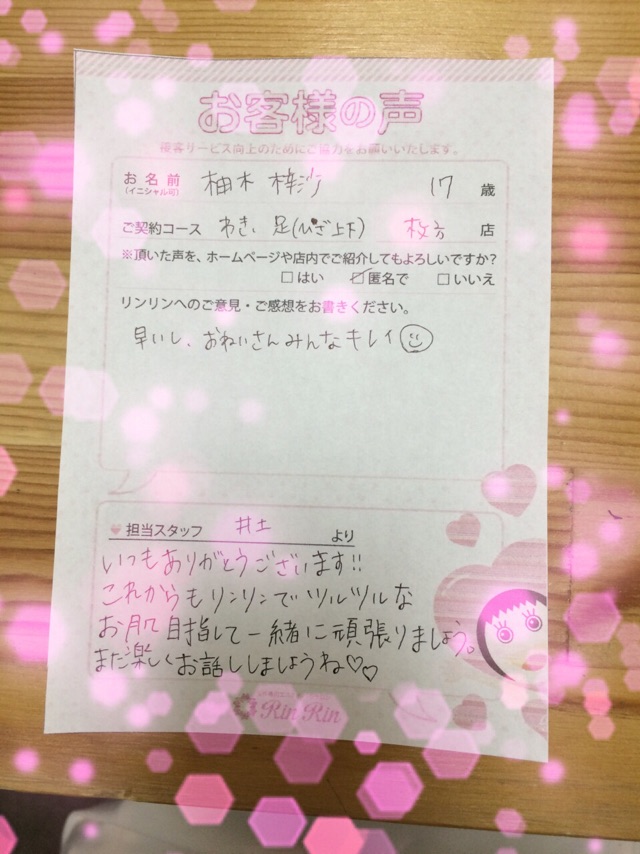 お客様の声
接客サービス向上のためにご協力をお願いいたします。
お名前 (イニシャル可) 柚木 梓沙 17 歳
ご契約コース わき、足(ひざ上下) 枚方 店
※頂いた声を、ホームページや店内でご紹介してもよろしいですか?
□はい ☑匿名で □いいえ
リンリンへのご意見・ご感想をお書きください。
早いし、おねいさんみんなキレイ
担当スタッフ 井土 より
いつもありがとうございます!!
これからもリンリンでツルツルな
お肌目指して一緒に頑張りましょう。
また楽しくお話ししましょうね♡♡
Rin Rin